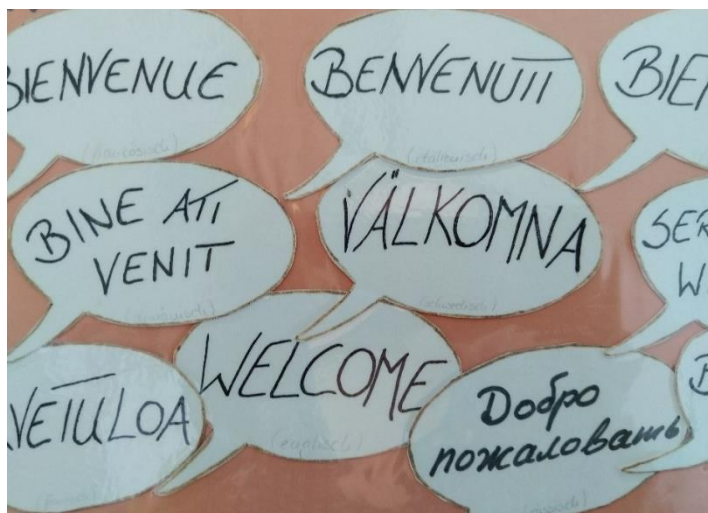 BIENVENUE
(französisch)
BENVENUTI
(italienisch)
BIEN
BINE ATI
VENIT
(rumänisch)
VÄLKOMNA
(schwedisch)
SER
WI
VETULOA
(finnisch)
WELCOME
(englisch)
Добро
пожаловать
(russisch)
B